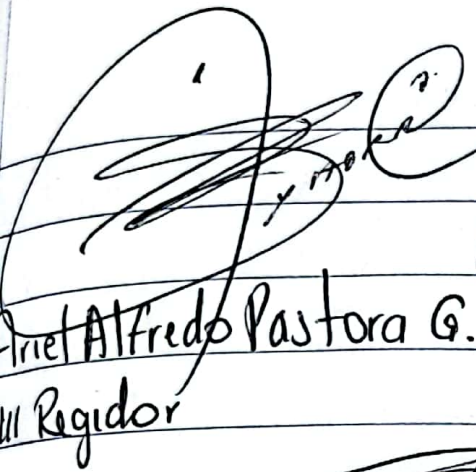 Ariel Alfredo Pastora G.
III Regidor